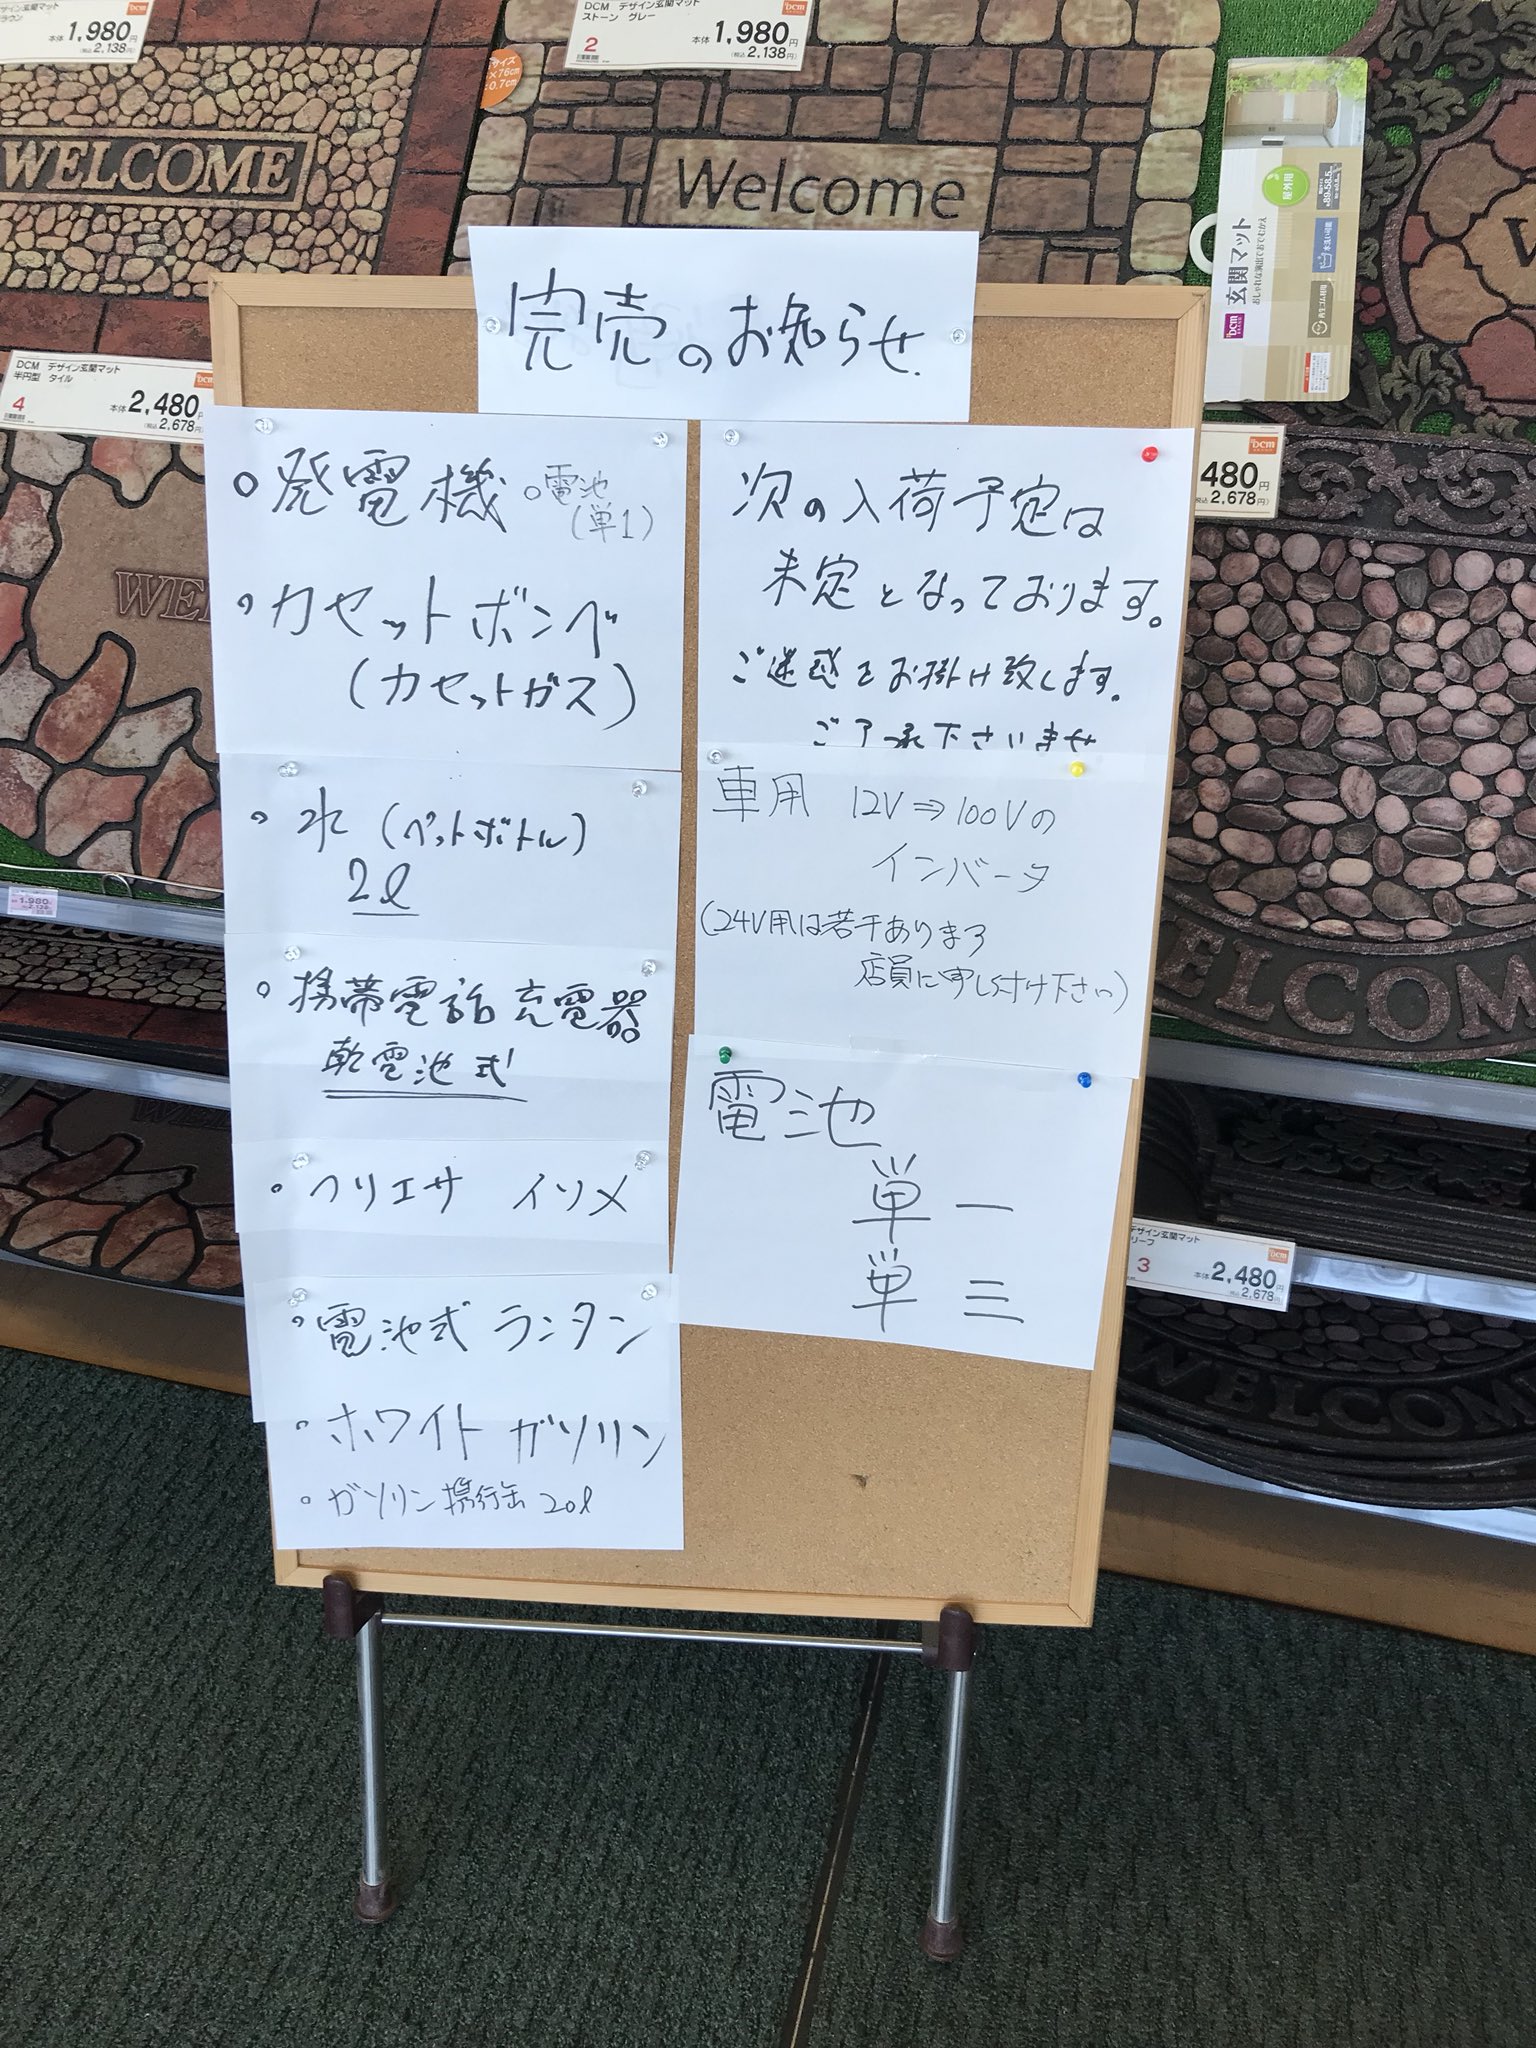 ラウン
本体 1,980円
(税込 2,138円)
DCM デザイン玄関マット
ストーン グレー
2
本体 1,980円
(税込 2,138円)
DCM
サイズ
×76cm
0.7cm
WELCOME
Welcome
屋外用
玄関マット
おしゃれな演出でおでむかえ
水洗い可能
再生ゴム利用
DCM
DCM デザイン玄関マット
半円型 タイル
4
本体 2,480円
(税込 2,678円)
480円
2,678円)
DCM
完売のお知らせ.
○ 発電機
○ 電池
(単1)
○ カセットボンベ
(カセットガス)
○ 水 (ペットボトル)
2ℓ
○ 携帯電話 充電器
乾電池式
○ クリエサ イソメ
○ 電池式 ランタン
○ ホワイト ガソリン
○ ガソリン携行缶 20ℓ
次の入荷予定は
未定となっております。
ご迷惑をお掛け致します。
ご了承下さいませ
車用 12V⇒100Vの
インバータ
(24V用は若干あります
店員に申し付け下さい)
電池
単一
単三
WE
ELCOM
1,980円
デザイン玄関マット
リーフ
3
本体 2,480円
(税込 2,678円)
DCM
WELCOME